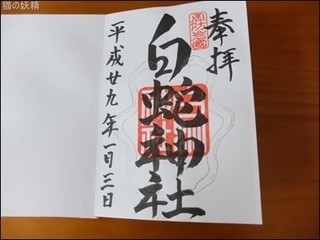 猫の妖精
奉拝
白蛇神社
平成廿九年一月三日